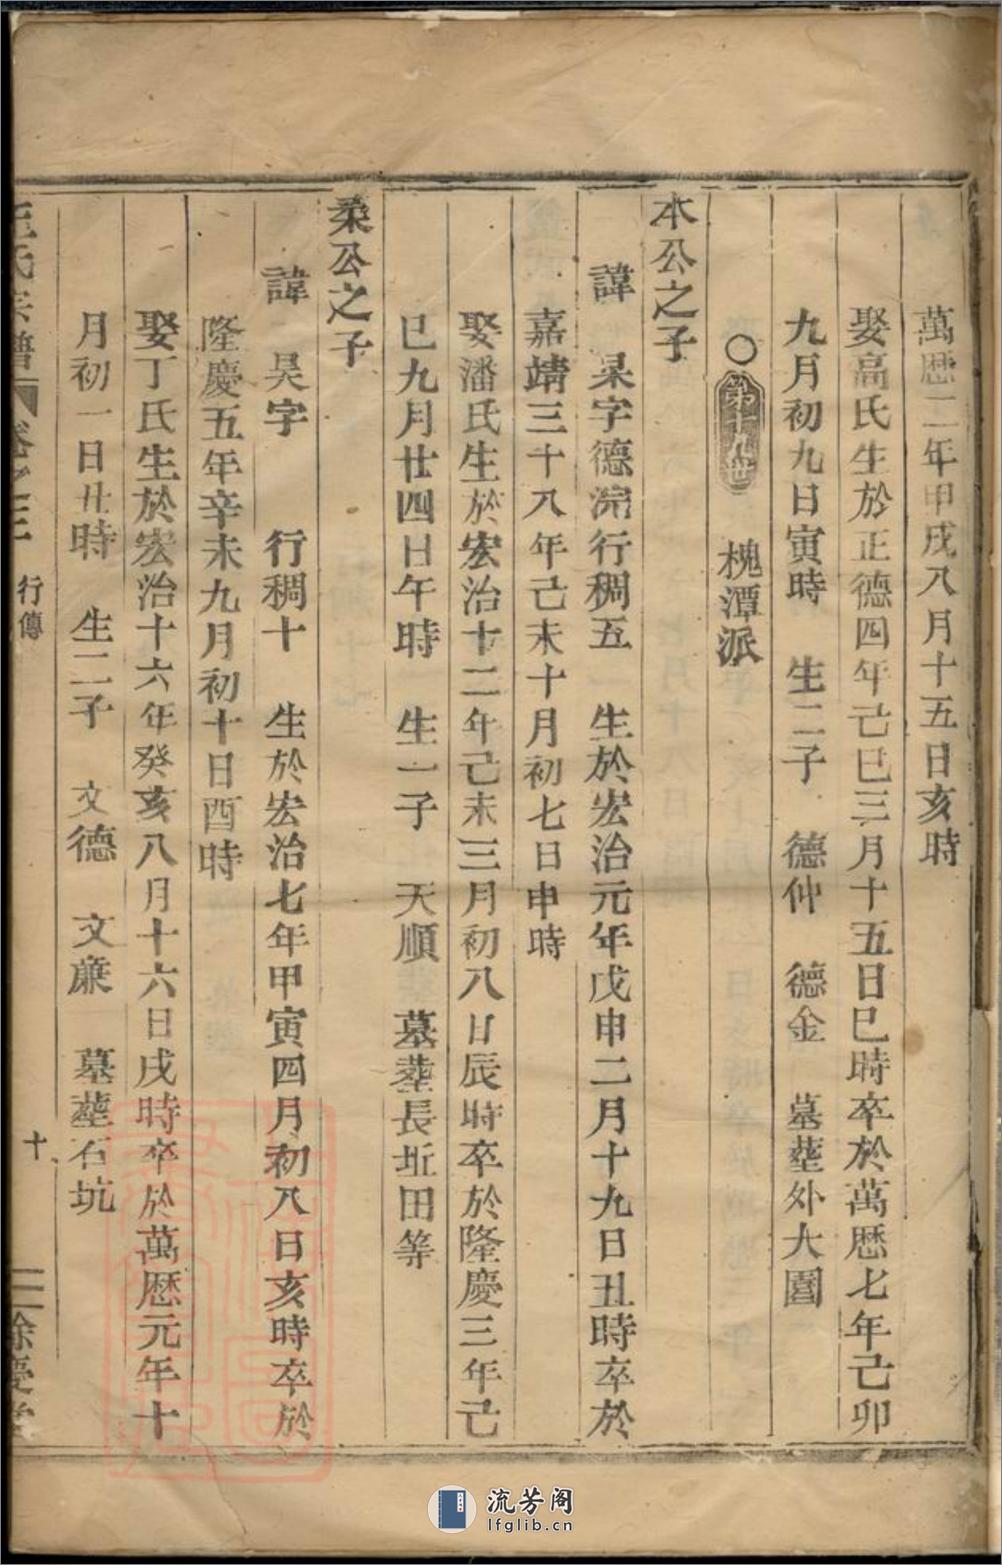 萬厯二年甲戌八月十五日亥時
娶高氏生於正德四年己巳三月十五日巳時卒於萬厯七年己卯
九月初九日寅時 生二子 德仲 德金 墓塟外大園
○第十九世 槐潭派
本公之子
諱杲字德淙行稠五 生於宏治元年戊申二月十九日丑時卒於
嘉靖三十八年己未十月初七日申時
娶潘氏生於宏治十二年己未三月初八日辰時卒於隆慶三年己
巳九月廿四日午時 生一子 天順 墓塟長坵田等
柔公之子
諱昊字 行稠十 生於宏治七年甲寅四月初八日亥時卒於
隆慶五年辛未九月初十日酉時
娶丁氏生於宏治十六年癸亥八月十六日戌時卒於萬厯元年十
月初一日丑時 生二子 文德 文亷 墓塟石坑
王氏宗譜 卷之三 行傳 十 餘慶堂
流芳阁
lfglib.cn